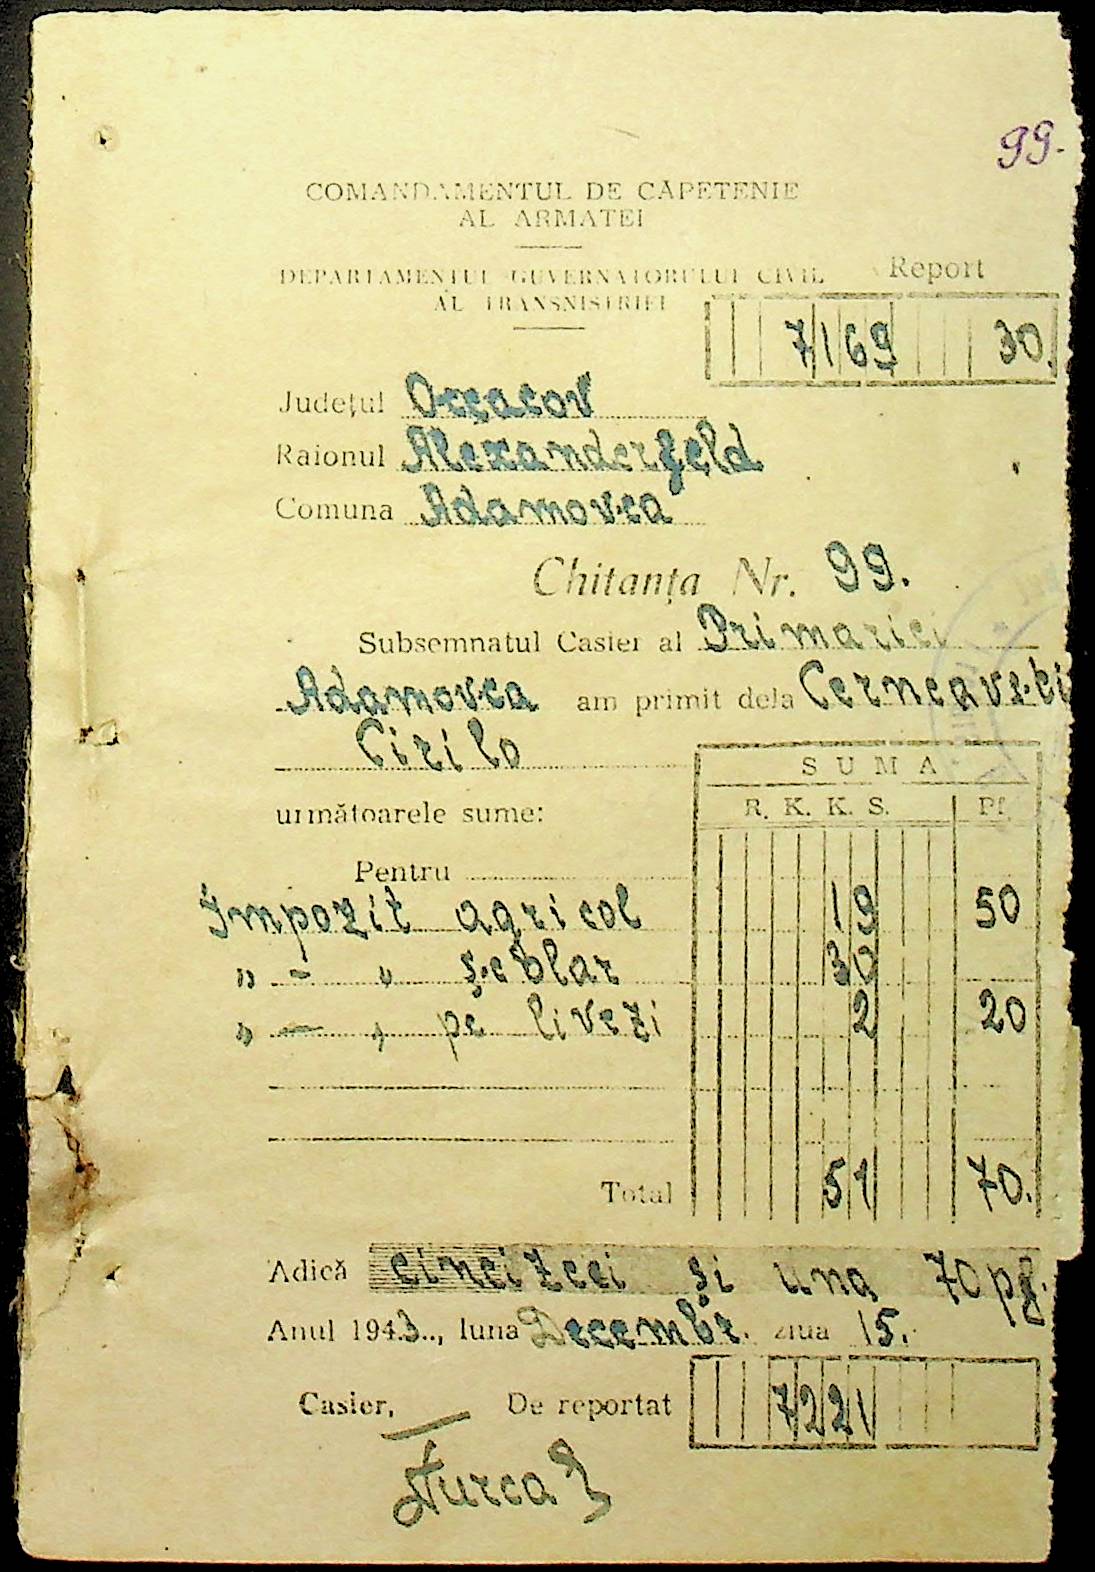 99.
COMANDAMENTUL DE CĂPETENIE
AL ARMATEI
DEPARTAMENTUL GUVERNATORULUI CIVIL
AL TRANSNISTRIEI
Report
7169 30.
Județul Oceacov
Raionul Alexanderfeld
Comuna Adamovca
Chitanța Nr. 99.
Subsemnatul Casier al Primariei
Adamovca am primit dela Cerneavschi
Cirilo
SUMA
următoarele sume: R. K. K. S. Pf.
Pentru
Impozit agricol 19 50
„ - „ școlar 30
„ - „ pe livezi 2 20
Total 51 70.
Adică cincizeci și una 70 pf.
Anul 1943., luna Decembr. ziua 15.
Casier, De reportat 7221